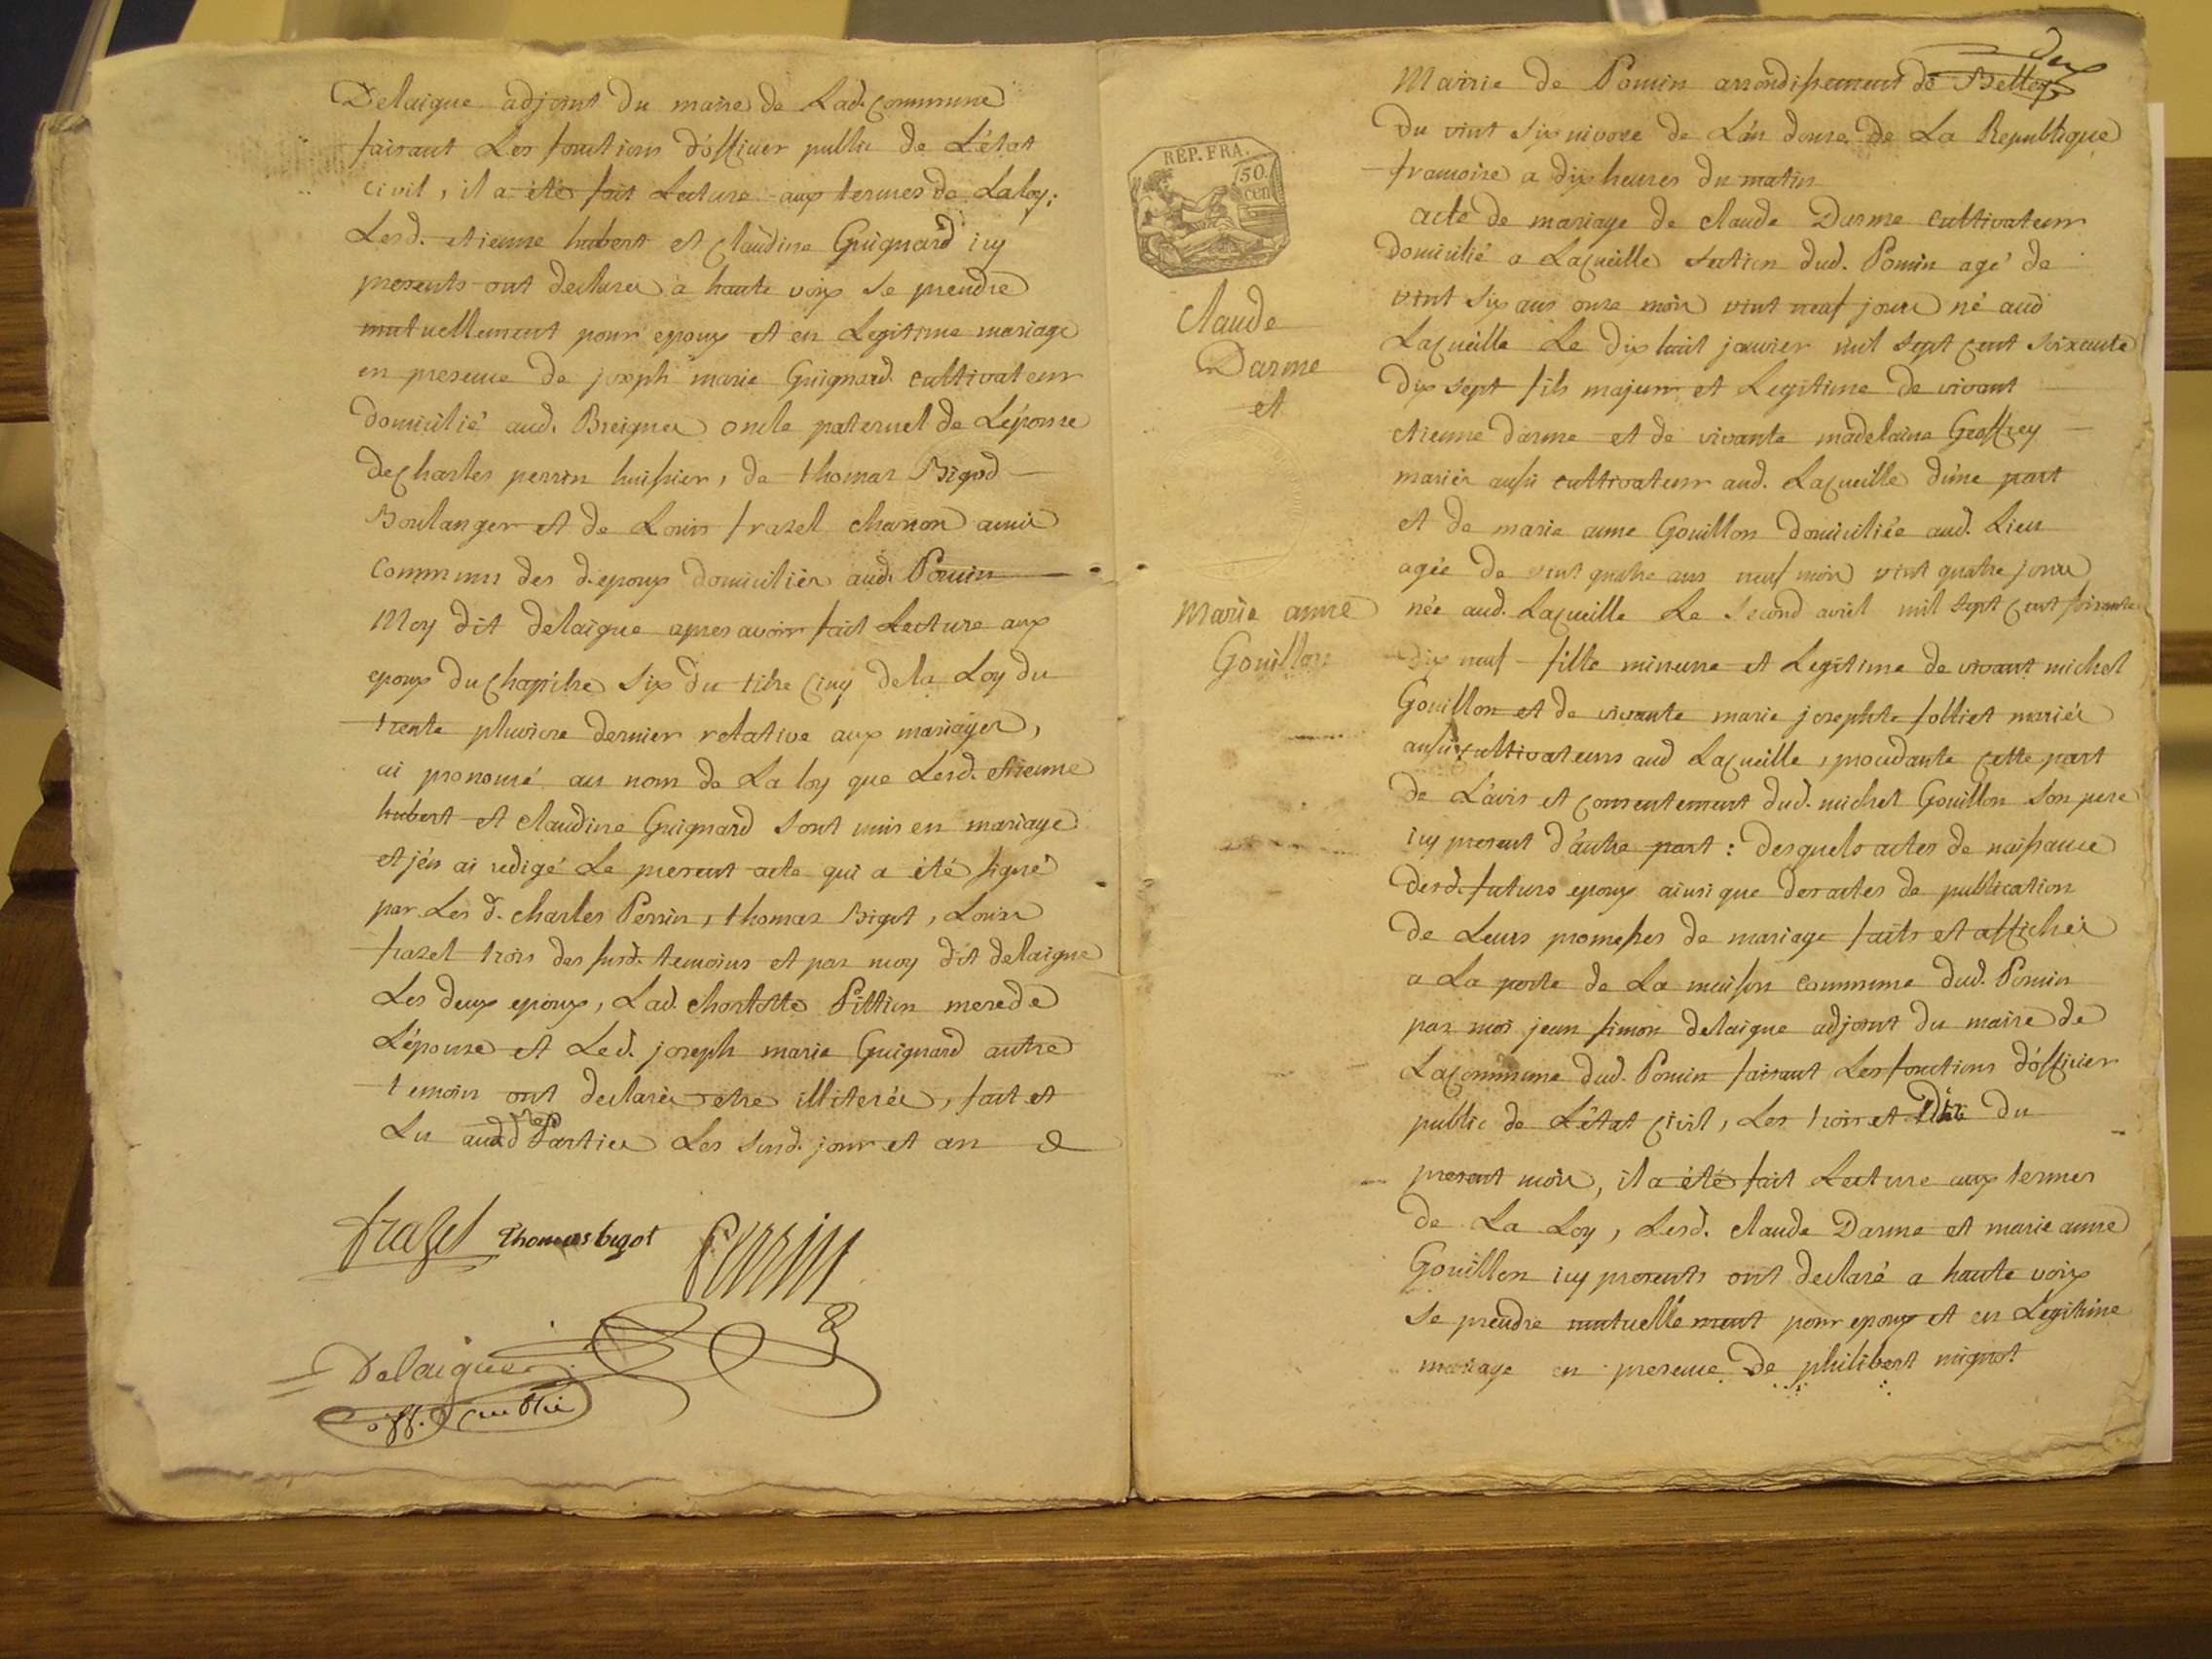 Delaigue adjoint du maire de Lad. commune
faisant Les fonctions d'officier public de L'état
civil, il a été fait Lecture aux termes de La loy;
Lesd. etienne hubert et claudine Guignard icy
presents ont declarés à haute voix se prendre
mutuellement pour epoux et en Legitime mariage
en presence de joseph marie Guignard cultivateur
domicilié aud. Breignes oncle paternel de L'épouse
de charles perrin huissier, de thomas Bigod
Boulanger et de Louis frazel charron amis
communs des d. epoux domiciliés aud. Pouin
Moy dit delaigue apres avoir fait Lecture aux
epoux du chapitre six du titre cinq de la Loy du
trente pluviose dernier relative aux mariages,
ai prononcé au nom de La loy que Lesd. etienne
hubert et claudine Guignard sont unis en mariage
et j'en ai redigé Le present acte qui a été signé
par Les d. charles Perrin, thomas Bigot, Louis
frazel trois des susd. temoins et par moy dit delaigue
Les deux epoux, Lad. charlotte Pittion mere de
L'épouse et Led. joseph marie Guignard autre
temoin ont declarés etre illiterés, fait et
Lu auxd. Parties Les susd. jour et an
frazel thomas bigot Perrin
Delaigue
off. public
deux
Mairie de Pouin arrondissement de Belley
Du vint six nivose de L'an douze de La Republique
francoise a dix heures du matin
REP. FRA.
50.
cen
acte de mariage de claude Darme cultivateur
domicilié a Lacueille section dud. Pouin agé de
vint six ans onze mois vint neuf jours né aud
claude
Darme
et
Marie anne
Gouillon
Lacueille Le dix huit janvier mil sept cent soixante
dix sept fils majeur et Legitime de vivant
etienne darme et de vivante madelaine Geoffrey
mariés aussi cultivateurs aud. Lacueille d'une part
et de marie anne Gouillon domiciliée aud. Lieu
agée de vint quatre ans neuf mois vint quatre jours
née aud. Lacueille Le second avril mil sept cent soixante
dix neuf fille mineure et Legitime de vivant michel
Gouillon et de vivante marie josephte folliet mariés
aussi cultivateurs aud Lacueille, procedante cette part
de L'avis et consentement dud. michel Gouillon son pere
icy present d'autre part: desquels actes de naissance
desd. futurs epoux ainsi que des actes de publication
de Leurs promesses de mariage faits et affichés
a La porte de La maison commune dud. Pouin
par moi jean simon delaigue adjoint du maire de
La commune dud. Pouin faisant Les fonctions d'officier
public de L'état civil, Les trois et Dix du
present mois, il a été fait Lecture aux termes
de La Loy, Lesd. claude Darme et marie anne
Gouillon icy presents ont declaré a haute voix
se prendre mutuellement pour epoux et en Legitime
mariage en presence de philibert mignot